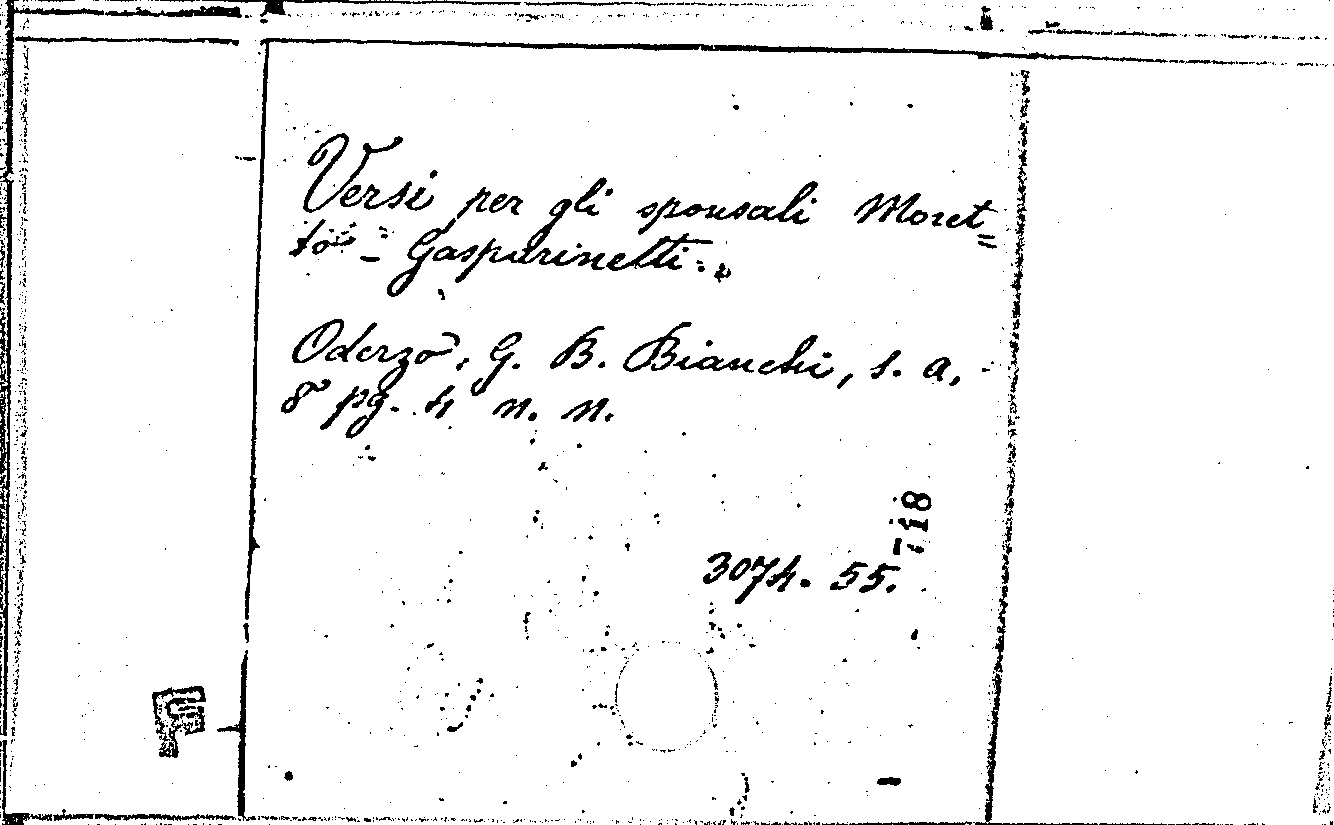 Versi per gli sponsali Moret=
to - Gasparinetti.
Oderzo, G. B. Bianchi, s. a,
8° pg. 4 n. n.
3074. 55.
718